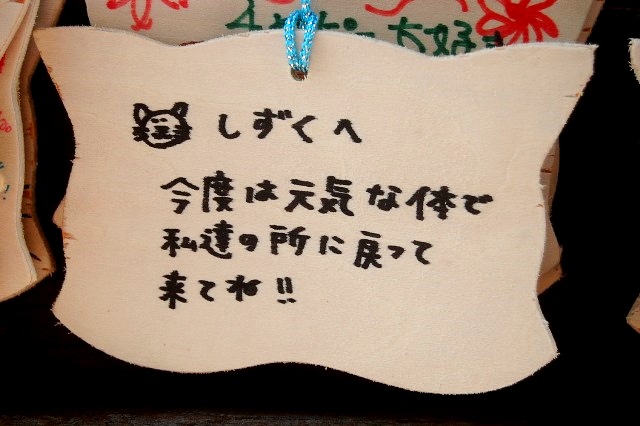 大好き
しずくへ
今度は元気な体で
私達の所に戻って
来てね!!